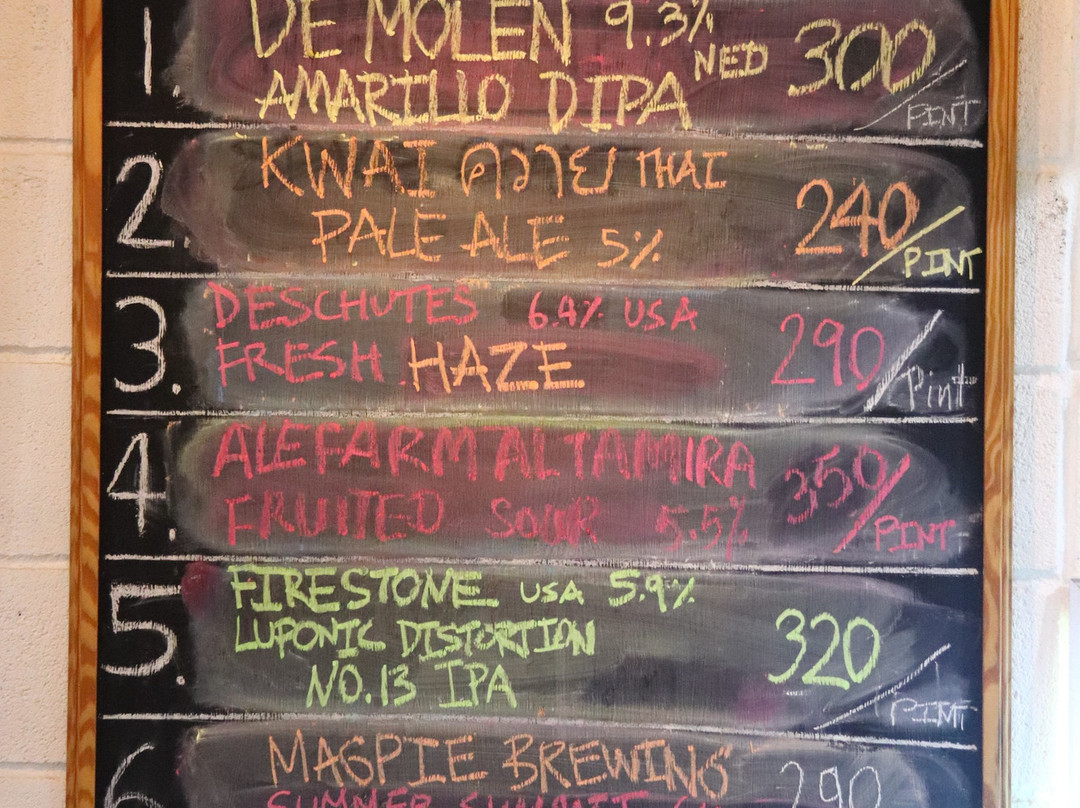 1. DE MOLEN 9.3% NED 300/PINT
AMARILLO DIPA
2. KWAI ควาย THAI 240/PINT
PALE ALE 5%
3. DESCHUTES 6.4% USA 290/Pint
FRESH HAZE
4. ALEFARM ALTAMIRA 350/PINT
FRUITED SOUR 5.5%
5. FIRESTONE USA 5.9% 320/PINT
LUPONIC DISTORTION
NO.13 IPA
6 MAGPIE BREWING 290
SUMMER SUMMIT